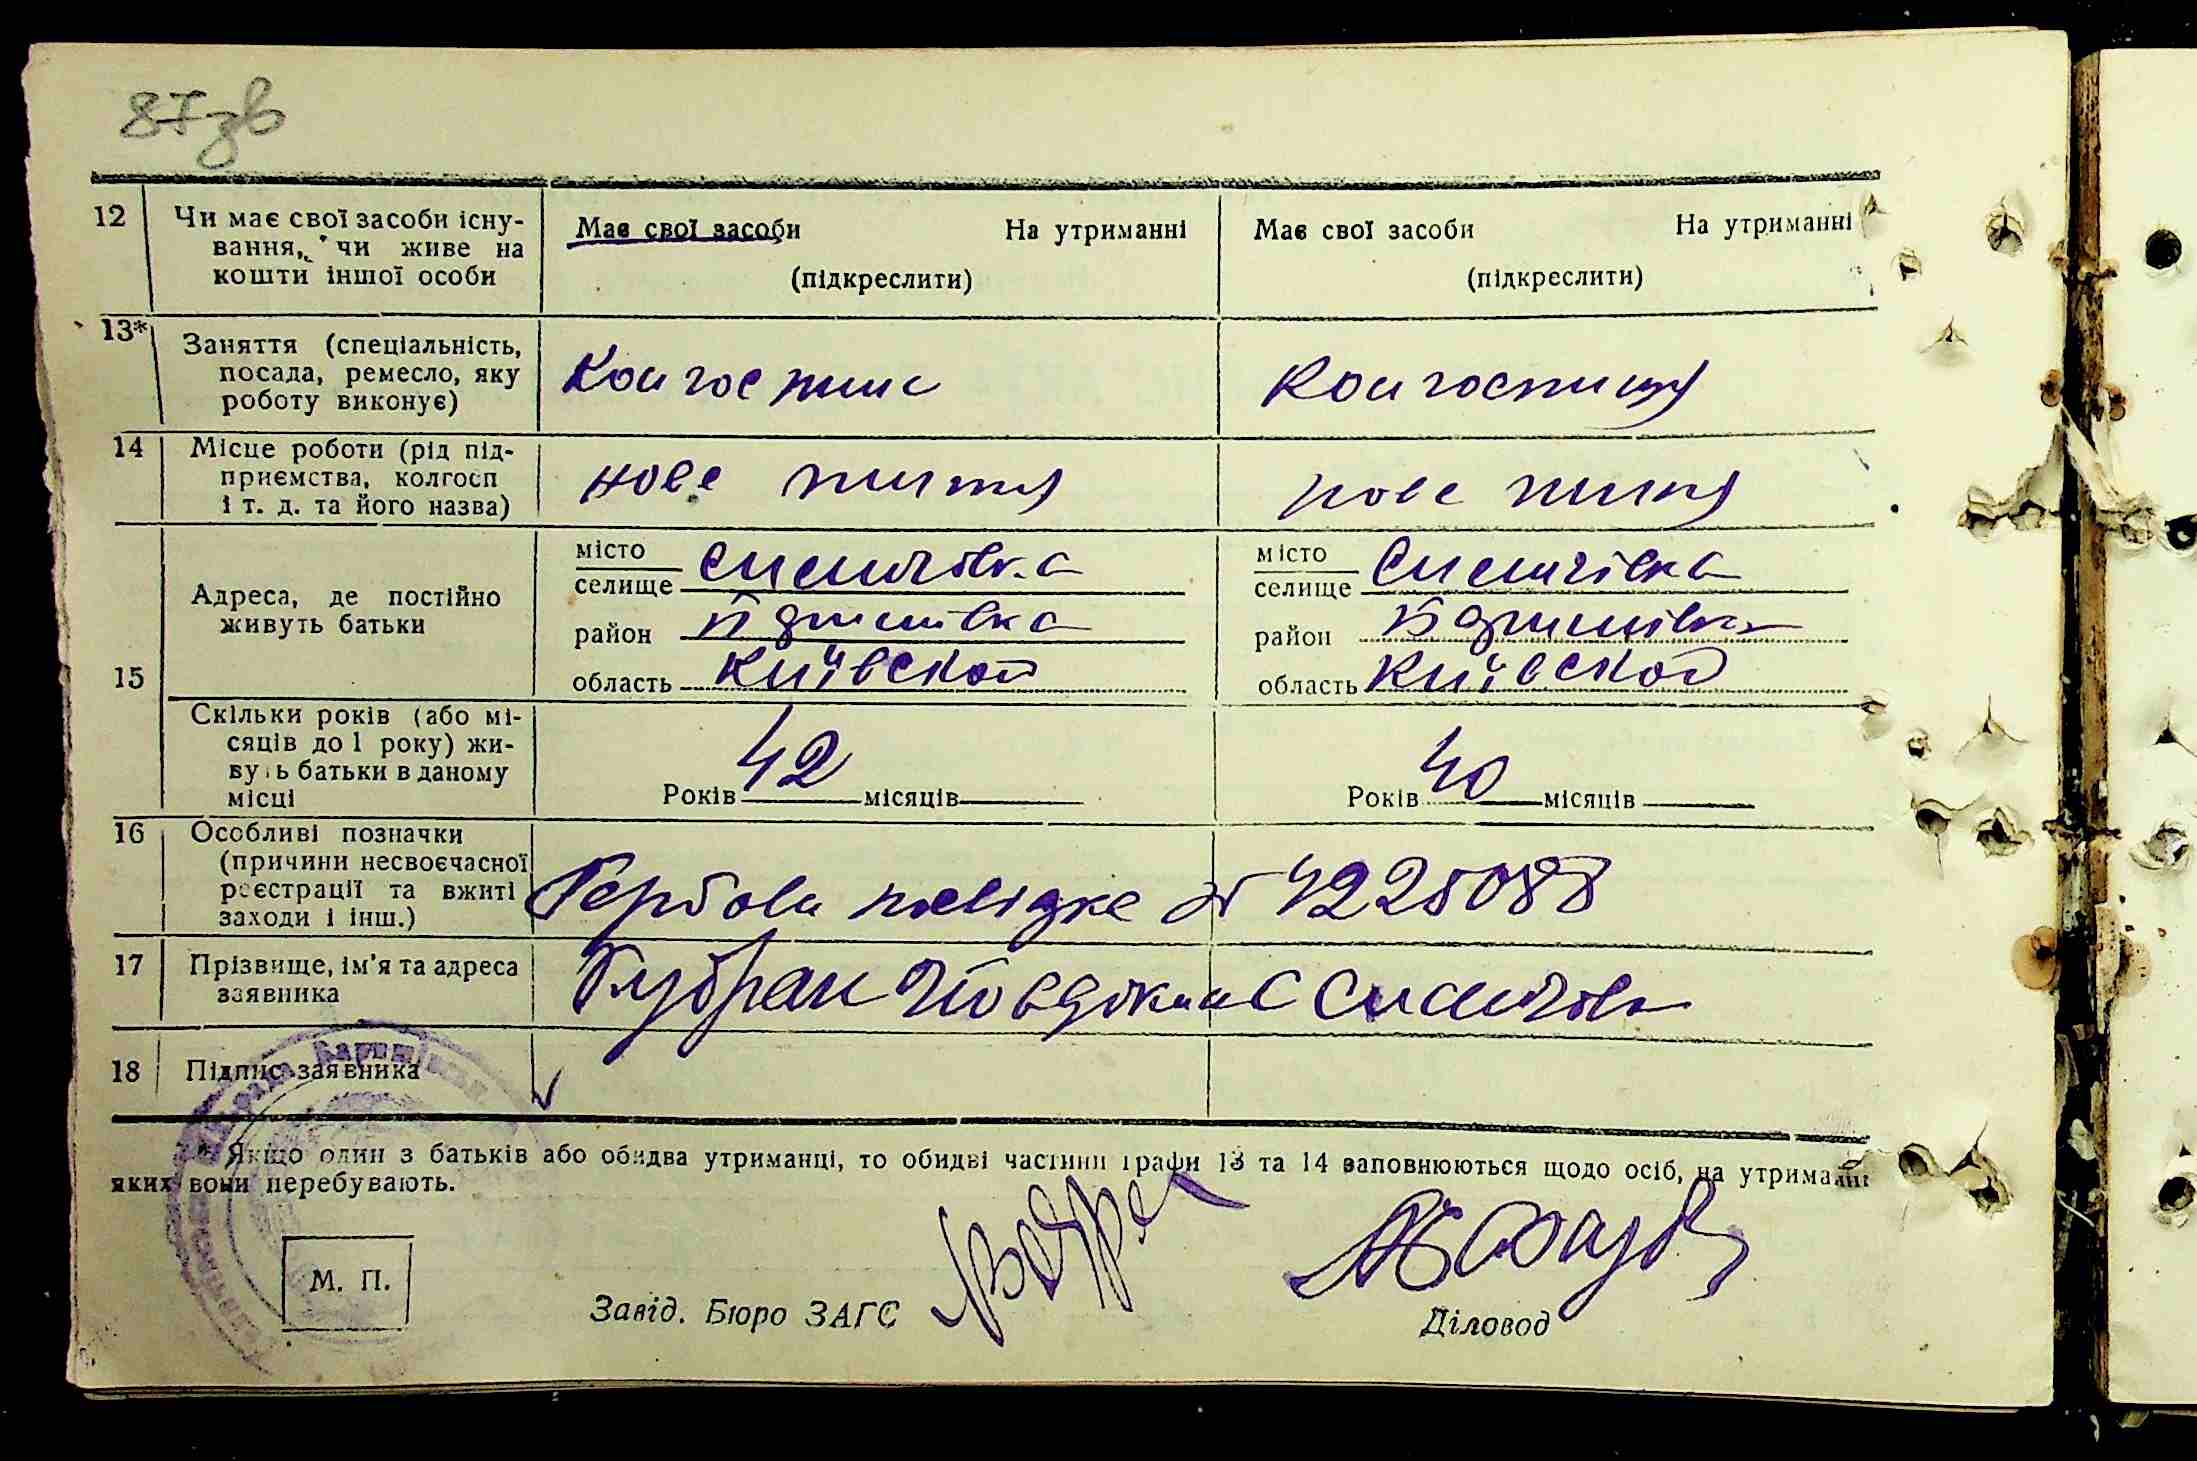 87зв
12 Чи має свої засоби існу-
вання, чи живе на
кошти іншої особи
Має свої засоби На утриманні
(підкреслити)
Має свої засоби На утриманні
(підкреслити)
13* Заняття (спеціальність,
посада, ремесло, яку
роботу виконує)
Колгоспник
Колгоспниця
14 Місце роботи (рід під-
приємства, колгосп
і т. д. та його назва)
нове життя
нове життя
15 Адреса, де постійно
живуть батьки
місто
селище
район
область Київской
місто
селище
район
область Київской
Скільки років (або мі-
сяців до 1 року) жи-
вуть батьки в даному
місці
Років 42 місяців
Років 40 місяців
16 Особливі позначки
(причини несвоєчасної
реєстрації та вжиті
заходи і інш.)
Гербова № 4225088
17 Прізвище, ім'я та адреса
заявника
18 Підпис заявника
* Якщо один з батьків або обидва утриманці, то обидві частини графи 13 та 14 заповнюються щодо осіб, на утриманні
яких вони перебувають.
М. П.
Завід. Бюро ЗАГС
Діловод